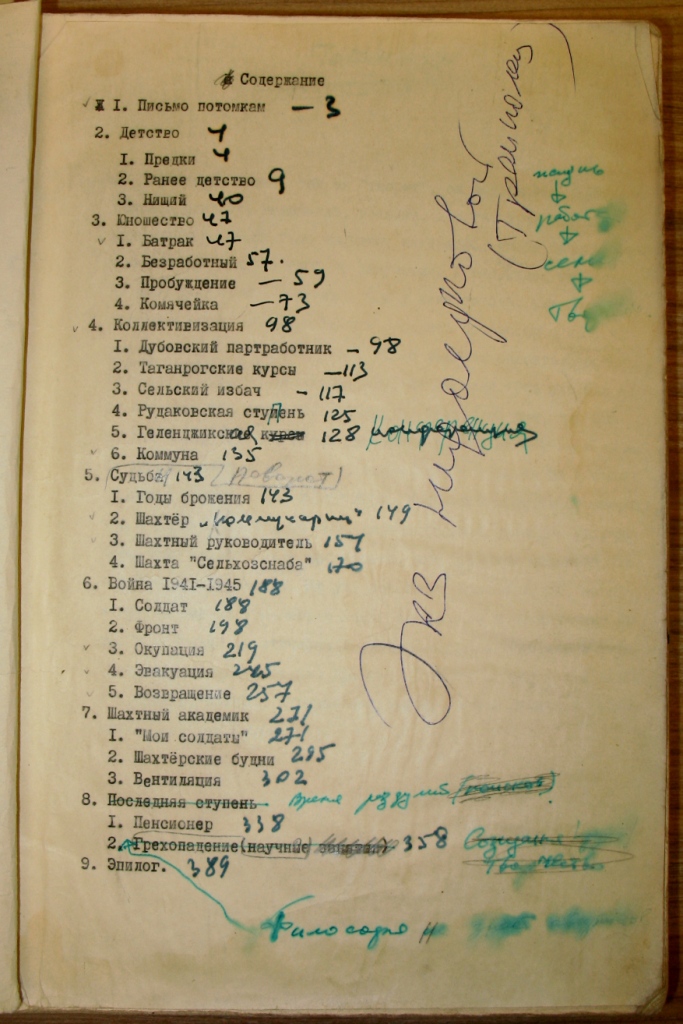 Содержание
1. Письмо потомкам — 3
2. Детство 4
1. Предки 4
2. Ранее детство 9
3. Нищий 40
3. Юношество 47
1. Батрак 47
2. Безработный 57.
3. Пробуждение — 59
4. Комячейка — 73
4. Коллективизация 98
1. Дубовский партработник — 98
2. Таганрогские курсы — 113
3. Сельский избач - 117
4. Рудаковская студпень 125
5. Геленджикская курсы 128
6. Коммуна 135
5. Судьба 143 (Поворот)
1. Годы брожения 143
2. Шахтёр „Коммунарки" 149
3. Шахтный руководитель 157
4. Шахта "Сельхозснаба" 170
6. Война 1941-1945 188
1. Солдат 188
2. Фронт 198
3. Окупация 219
4. Эвакуация 245
5. Возвращение 257
7. Шахтный академик 271
1. "Мои солдаты" 271
2. Шахтёрские будни 285
3. Вентиляция 302
8. Последняя ступень Время раздумий
1. Пенсионер 338
2. Грехопадение (научные 358
9. Эпилог. 389
Философия и
Творчество
Экз